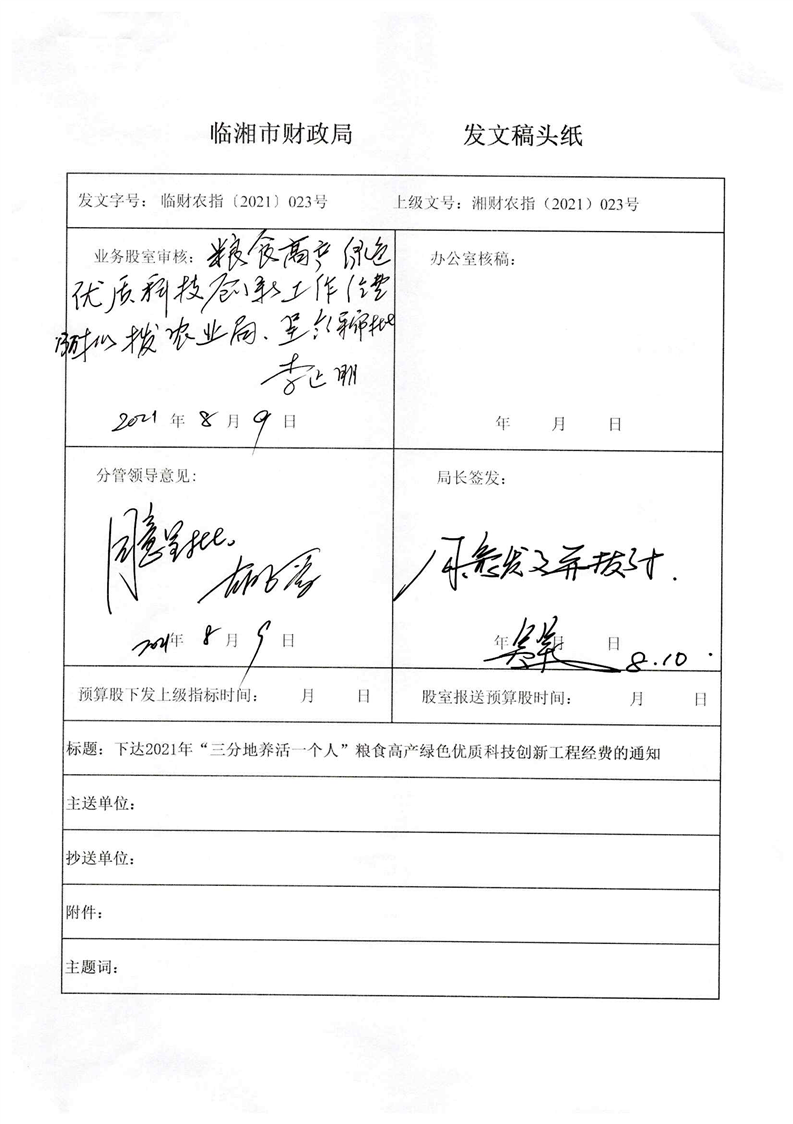 临湘市财政局 发文稿头纸
发文字号：临财农指〔2021〕023号 上级文号：湘财农指（2021）023号
业务股室审核：粮食高产绿色
优质科技创新工作经费
拟拨农业局、呈领导批
2021年8月9日
办公室核稿：
年 月 日
分管领导意见：
同意呈批。
2021年8月9日
局长签发：
同意发文并拨付.
年 月 日
8.10.
预算股下发上级指标时间： 月 日 股室报送预算股时间： 月 日
标题：下达2021年“三分地养活一个人”粮食高产绿色优质科技创新工程经费的通知
主送单位：
抄送单位：
附件：
主题词：